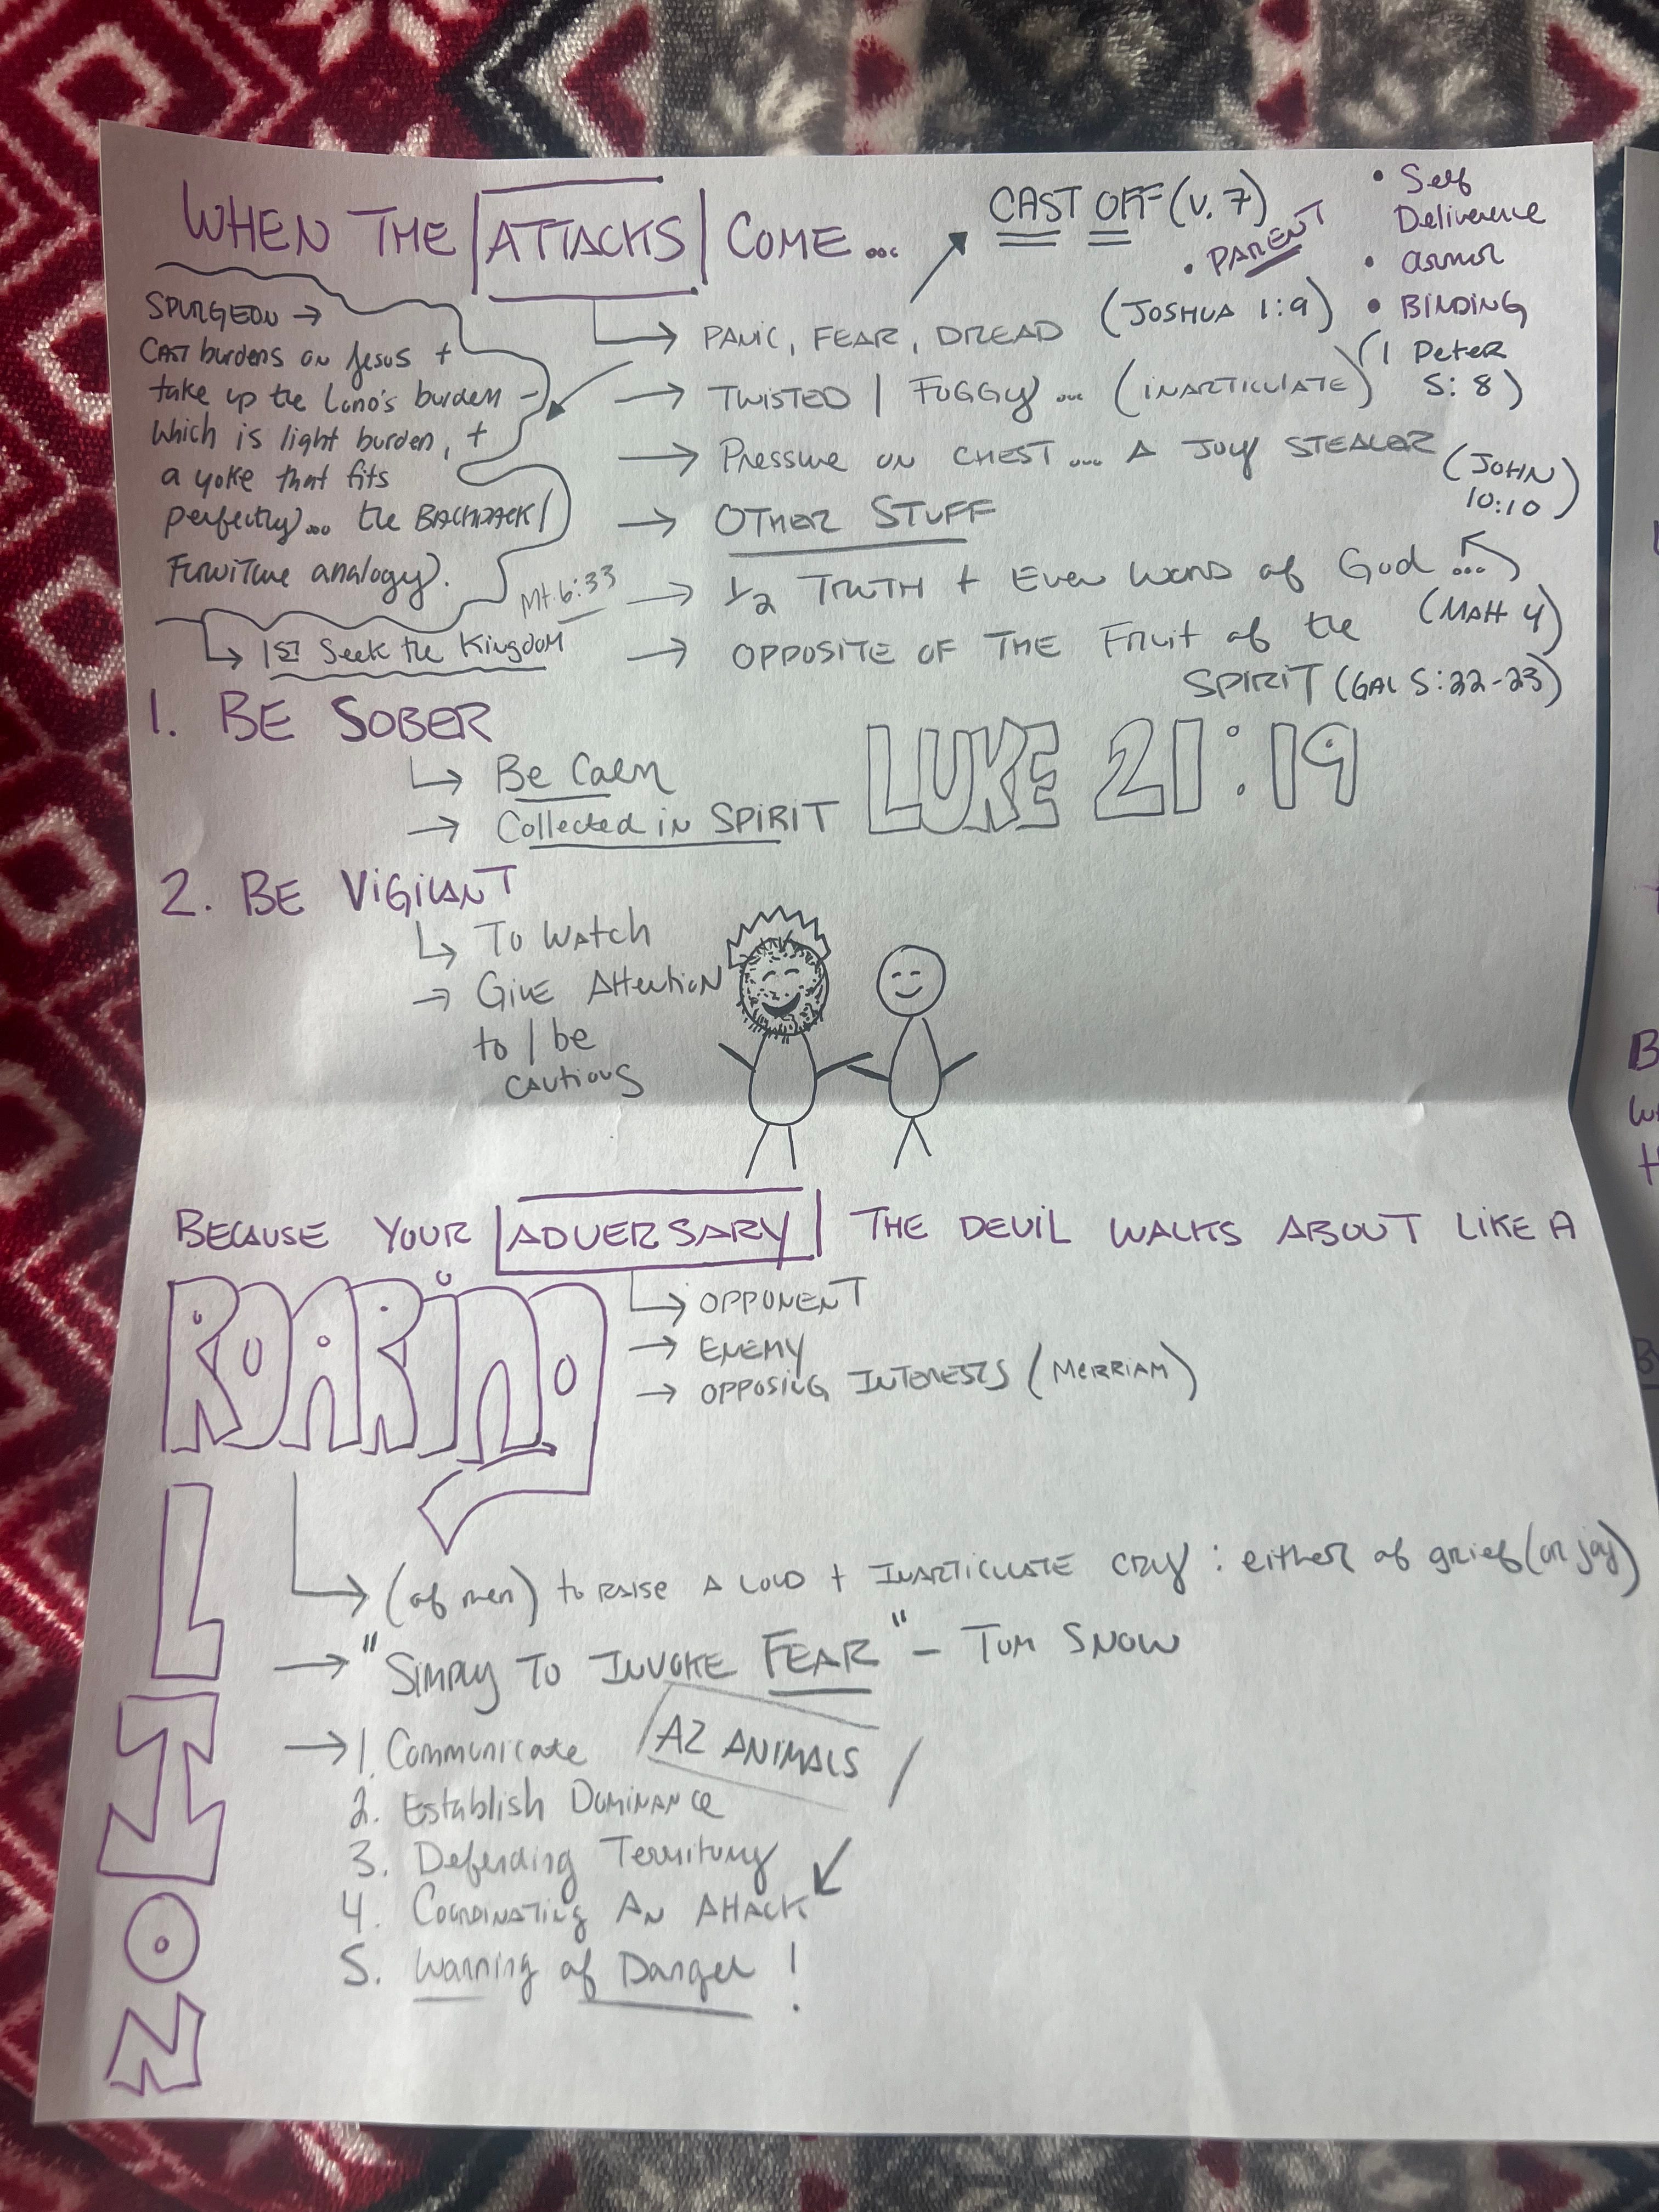 WHEN THE ATTACKS COME...
CAST OFF (v. 7)
• PARENT
• Self
Deliverence
• armor
• BINDING
SPURGEON →
Cast burdens on Jesus +
take up the Lord's burden –
which is light burden, +
a yoke that fits
perfectly... the BACKPACK/
FURNITURE analogy).
Mt. 6:33
↳ 1ST Seek the Kingdom
↳ PANIC, FEAR, DREAD (JOSHUA 1:9)
→ TWISTED | FOGGY... (INARTICULATE) (1 Peter
5:8)
→ Pressure on CHEST... A JOY STEALER (JOHN
10:10)
→ OTHER STUFF
→ 1/2 TRUTH + Even Word of God...
(MATT 4)
→ OPPOSITE OF THE Fruit of the
SPIRIT (GAL 5:22-23)
1. BE SOBER
↳ Be Calm
→ Collected in SPIRIT
LUKE 21:19
2. BE VIGILANT
↳ To Watch
→ Give Attention
to / be
cautious
BECAUSE YOUR ADVERSARY THE DEVIL WALKS ABOUT LIKE A
ROARING
↳ OPPONENT
→ ENEMY
→ OPPOSING INTERESTS (MERRIAM)
LION
↳ (of men) to RAISE A LOUD + INARTICULATE CRY : either of grief (or joy)
→ "Simply TO INVOKE FEAR" – TOM SNOW
→ 1. Communicate
AZ ANIMALS
2. Establish Dominance
3. Defending Territory
4. Coordinating An Attack
5. Warning of Danger !